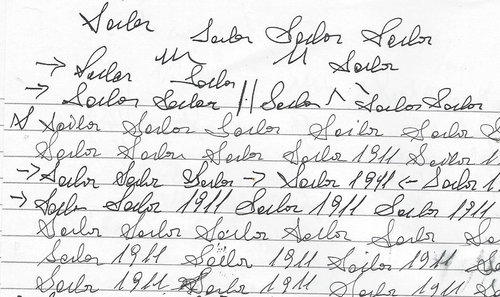 Sailor
Sailor Sailor Sailor
→ Sailor Sailor Sailor
→ Sailor Sailor || Sailor Sailor Sailor
Sailor Sailor Sailor Sailor Sailor
Sailor Sailor Sailor Sailor 1911 Sailor 1
→ Sailor Sailor Sailor → Sailor 1911 ← Sailor 1
→ Sailor Sailor 1911 Sailor 1911 Sailor 1911
Sailor Sailor Sailor Sailor Sailor
Sailor 1911 Sailor 1911 Sailor 1911
Sailor 1911 Sailor 1911 Sailor 1911